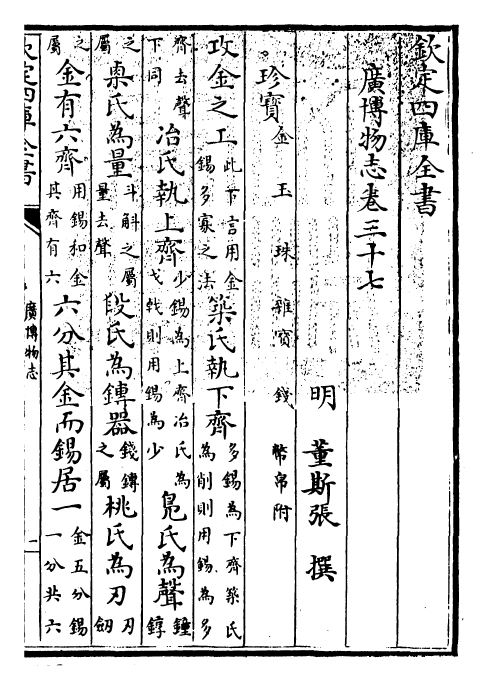 欽定四庫全書
廣博物志卷三十七
明 董斯張 撰
珍寶金 玉 珠 雜寶 錢 幣帛附
攻金之工此下言用金錫多寡之法築氏執下齊多錫為下齊築氏為削則用錫為多
齊去聲下同冶氏執上齊少錫為上齊冶氏為戈戟則用錫為少鳧氏為聲鐘錞
之屬㮚氏為量斗斛之屬量去聲段氏為鏄器錢鏄之屬桃氏為刃刃劒
之屬金有六齊用錫和金其齊有六六分其金而錫居一金五分錫一分共六
欽定四庫全書
廣博物志
一